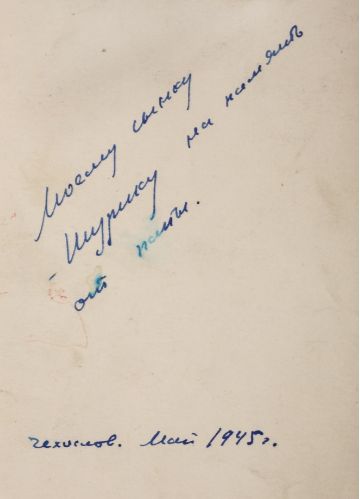 Моему сынку
Шурику на память
от папы.
Чехослов. Май 1945г.